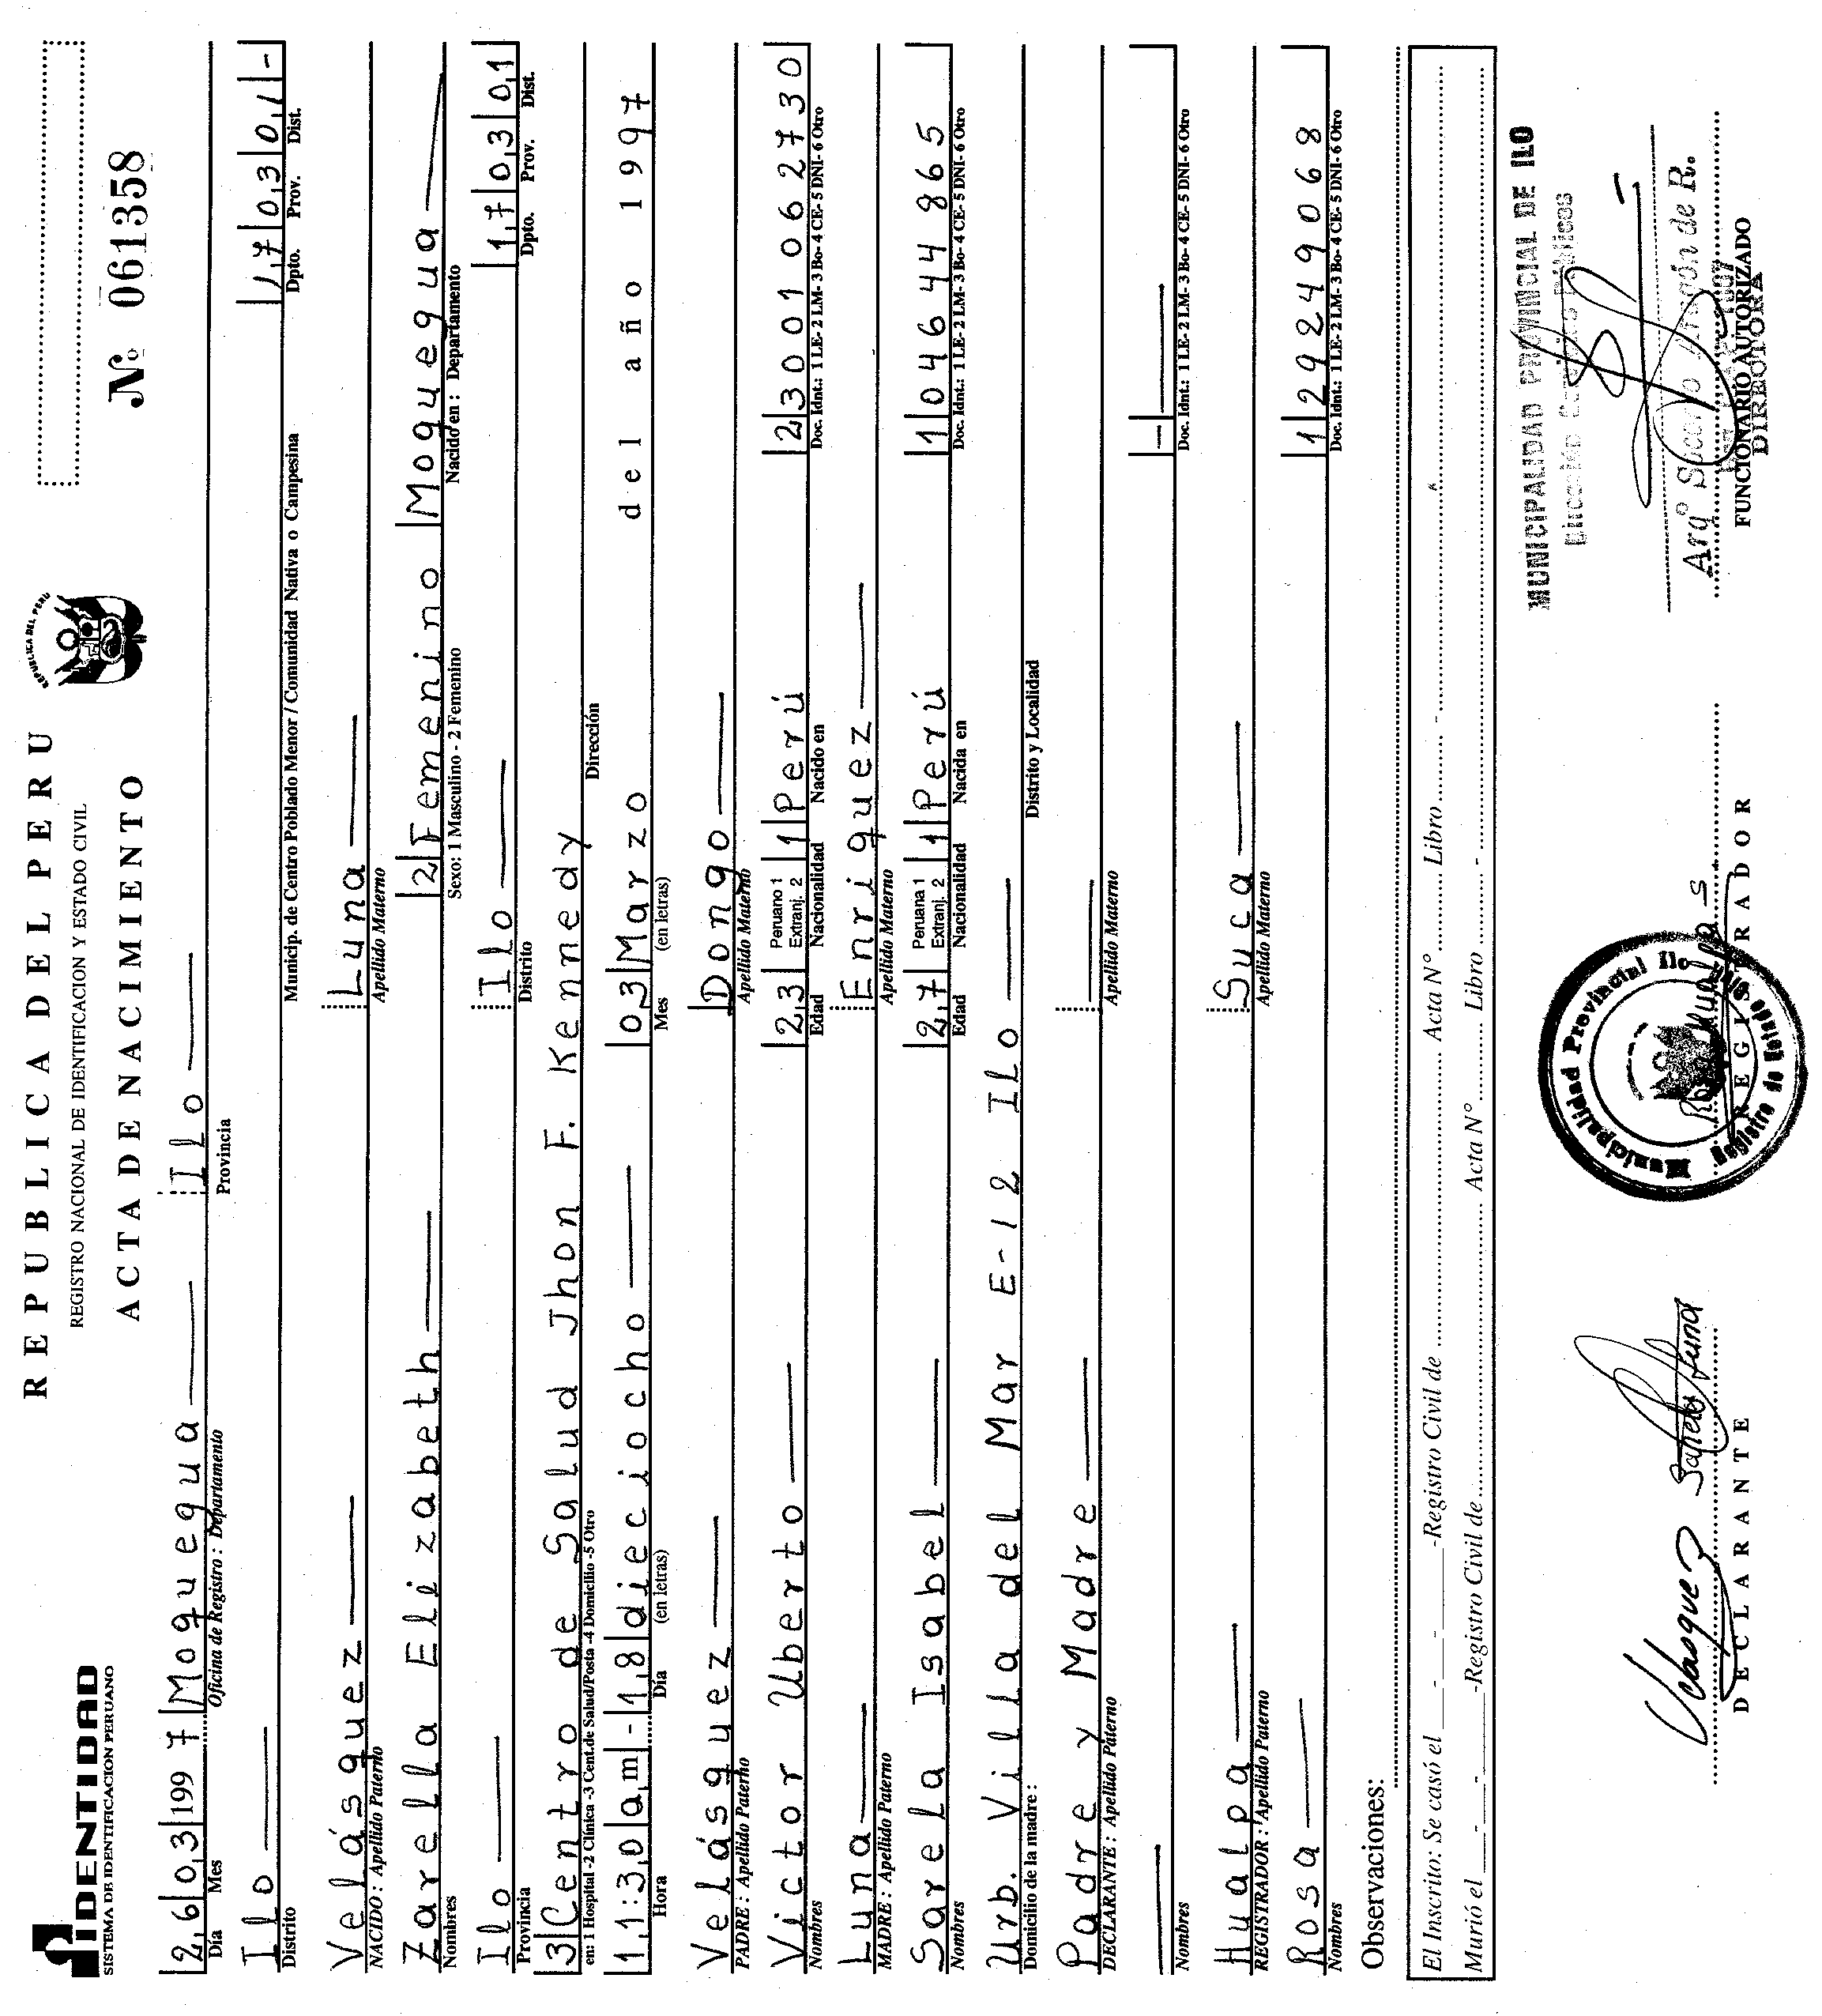 REPUBLICA DEL PERU
REGISTRO NACIONAL DE IDENTIFICACION Y ESTADO CIVIL
ACTA DE NACIMIENTO
IDENTIDAD
SISTEMA DE IDENTIFICACION PERUANO
REPUBLICA DEL PERU
Nº 061358
26 03 1997 Moquegua Ilo
Día Mes Oficina de Registro : Departamento Provincia
Ilo 17 03 01 -
Distrito Municip. de Centro Poblado Menor / Comunidad Nativa o Campesina Dpto. Prov. Dist.
Velásquez Luna
NACIDO : Apellido Paterno Apellido Materno
Zarella Elizabeth 2 Femenino Moquegua
Nombres Sexo: 1 Masculino - 2 Femenino Nacido en : Departamento
Ilo Ilo 17 03 01
Provincia Distrito Dpto. Prov. Dist.
3 Centro de Salud Jhon F. Kennedy
en: 1 Hospital -2 Clínica -3 Cent.de Salud/Posta -4 Domicilio -5 Otro Dirección
11:30 am - 18 dieciocho 03 Marzo del año 1997
Hora Día (en letras) Mes (en letras)
Velásquez Dongo
PADRE : Apellido Paterno Apellido Materno
Victor Uberto 23 Peruano 1 Extranj. 2 1 Perú 2 3001062730
Nombres Edad Nacionalidad Nacido en Doc. Idnt.: 1 LE- 2 LM- 3 Bo- 4 CE- 5 DNI- 6 Otro
Luna Enriquez
MADRE : Apellido Paterno Apellido Materno
Sarela Isabel 27 Peruana 1 Extranj. 2 1 Perú 1 04644865
Nombres Edad Nacionalidad Nacida en Doc. Idnt.: 1 LE- 2 LM- 3 Bo- 4 CE- 5 DNI- 6 Otro
Urb. Villa del Mar E-12 ILO
Domicilio de la madre : Distrito y Localidad
Padre y Madre
DECLARANTE : Apellido Paterno Apellido Materno
Nombres Doc. Idnt.: 1 LE- 2 LM- 3 Bo- 4 CE- 5 DNI- 6 Otro
Hualpa Suca
REGISTRADOR : Apellido Paterno Apellido Materno
Rosa 1 29249068
Nombres Doc. Idnt.: 1 LE- 2 LM- 3 Bo- 4 CE- 5 DNI- 6 Otro
Observaciones:
El Inscrito: Se casó el - - -Registro Civil de Acta N° Libro -
Murió el - - -Registro Civil de Acta N° Libro -
MUNICIPALIDAD PROVINCIAL DE ILO
Dirección Servicios Públicos
Municipalidad Provincial Ilo
Registro de Estado Civil
Velasquez
Arqº Socorro Aragón de R.
DIRECTORA
DECLARANTE REGISTRADOR FUNCIONARIO AUTORIZADO